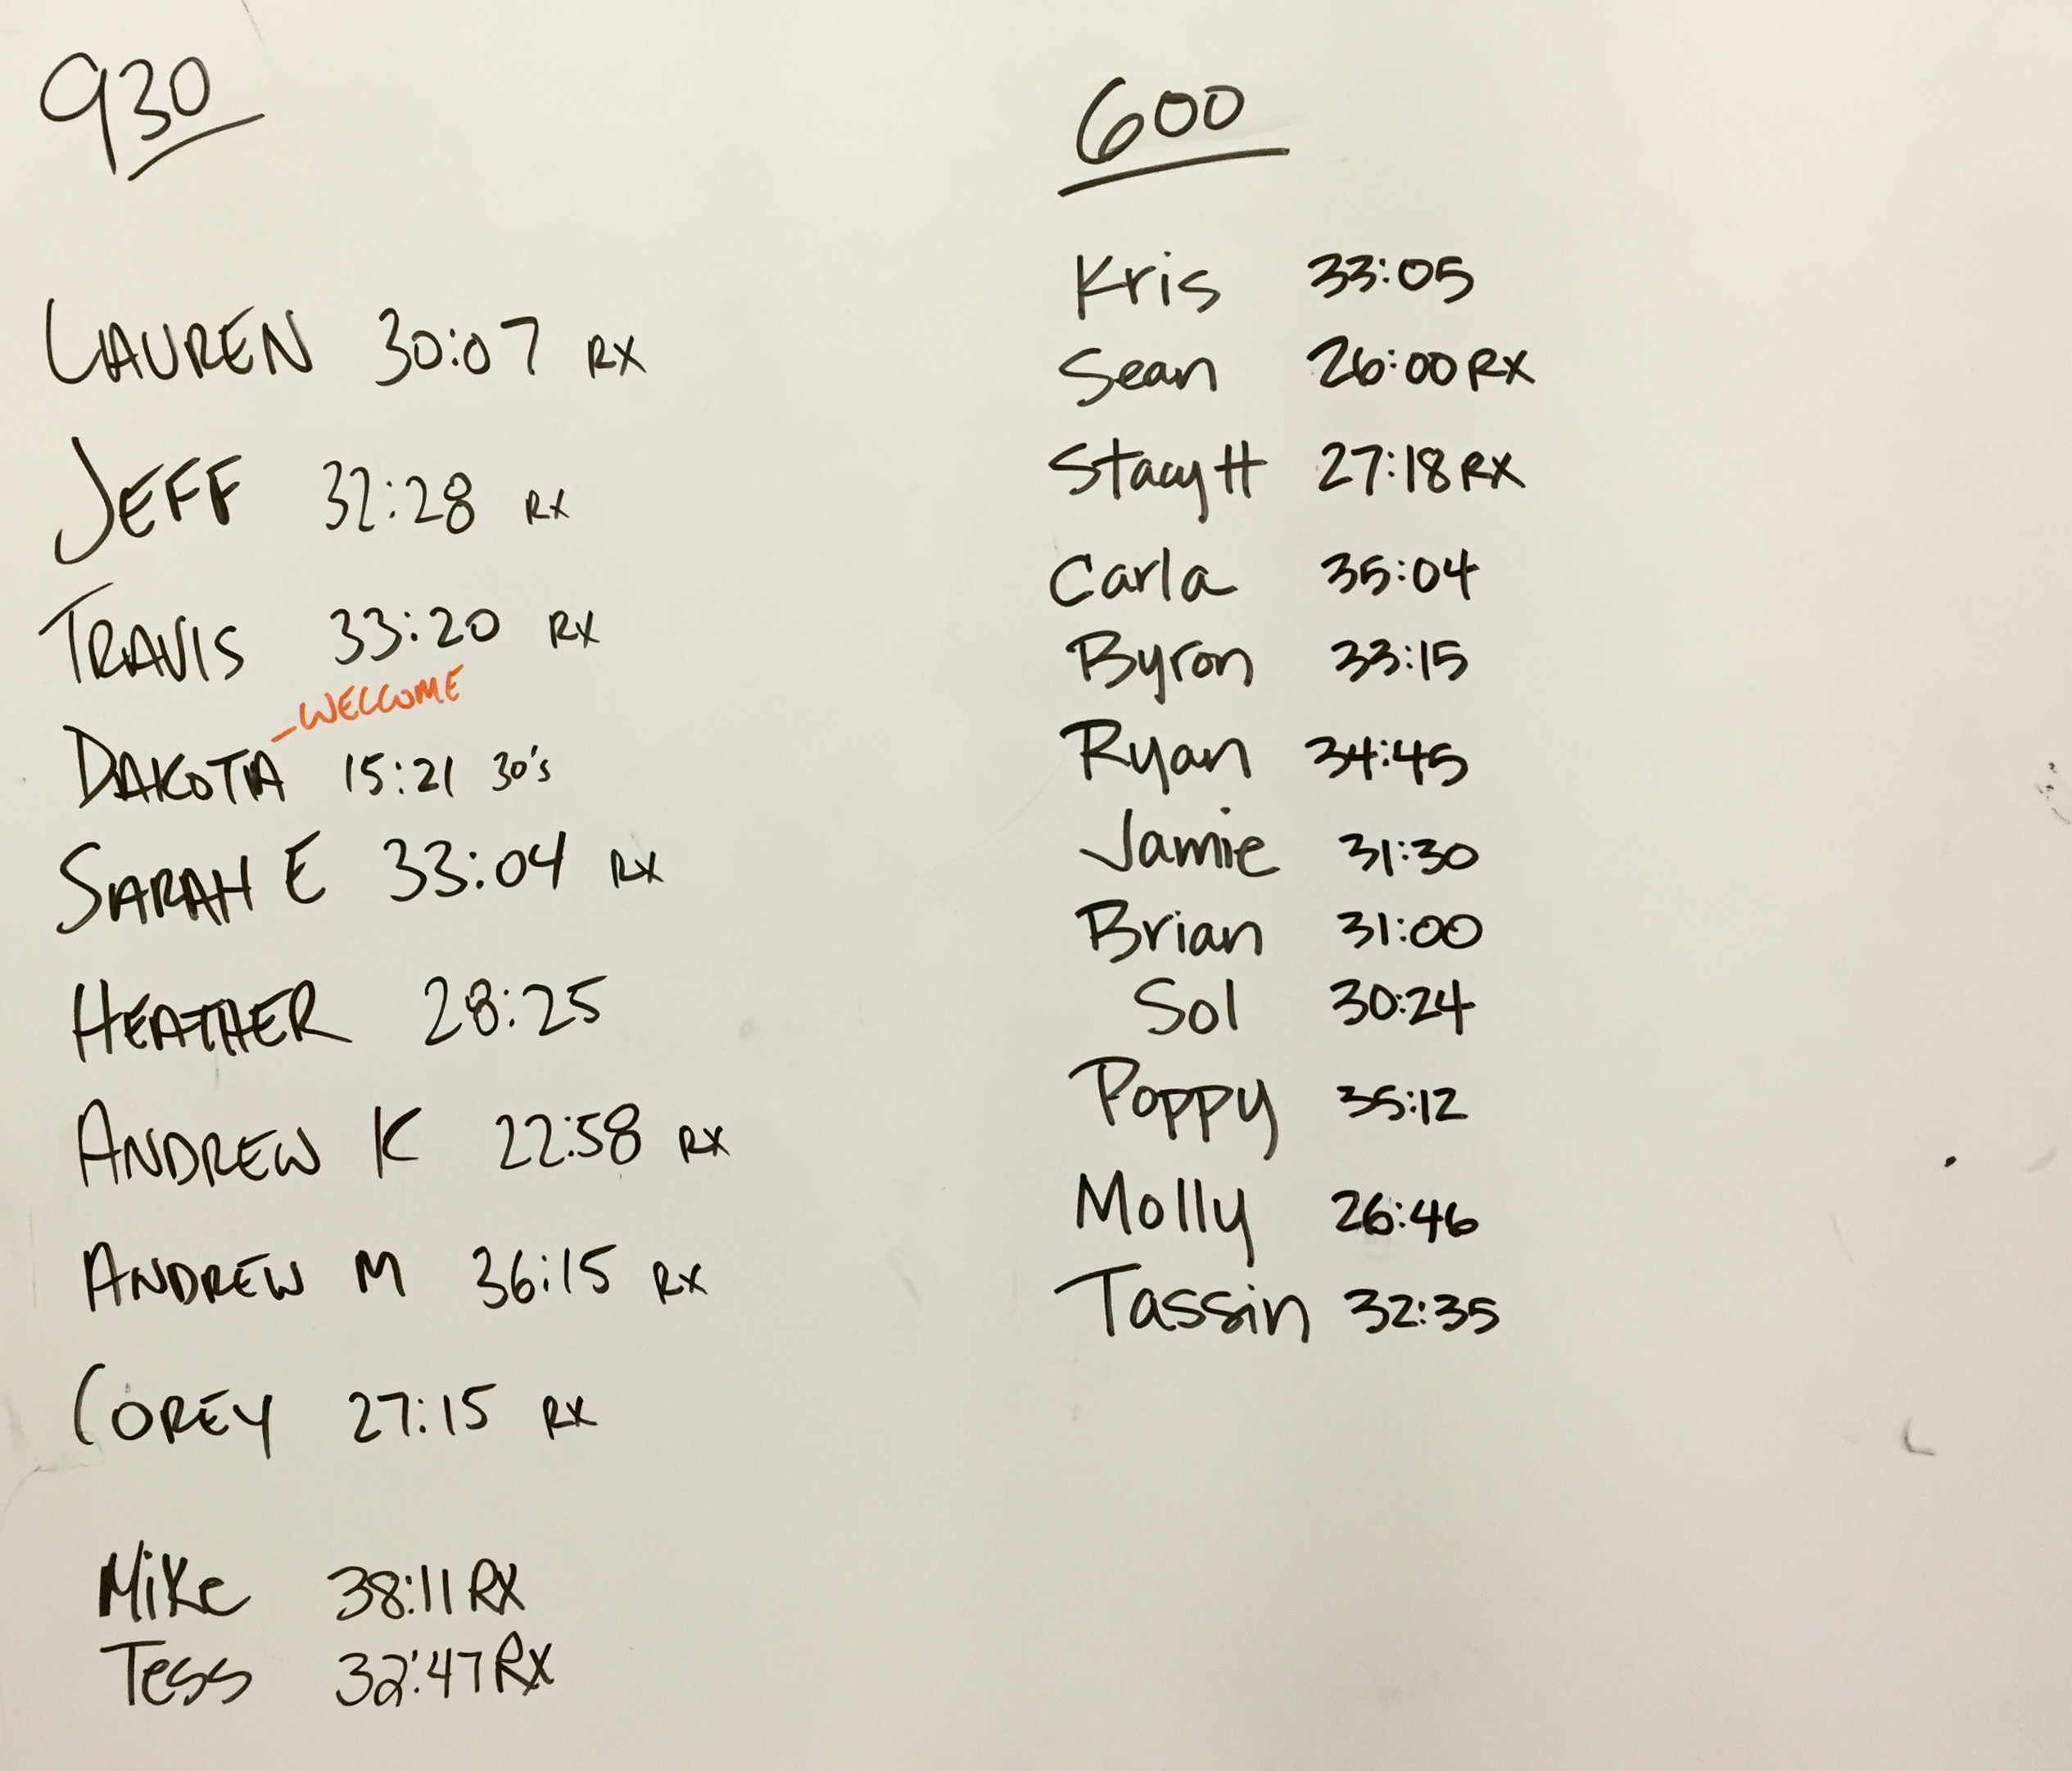 930
LAUREN 30:07 RX
JEFF 32:28 RX
TRAVIS 33:20 RX
- WELCOME
DAKOTA 15:21 30's
SARAH E 33:04 RX
HEATHER 28:25
ANDREW K 22:58 RX
ANDREW M 36:15 RX
COREY 27:15 RX
Mike 38:11 RX
Tess 32:47 RX
600
Kris 33:05
Sean 26:00 RX
Stacy H 27:18 RX
Carla 35:04
Byron 33:15
Ryan 34:45
Jamie 31:30
Brian 31:00
Sol 30:24
Poppy 35:12
Molly 26:46
Tassin 32:35